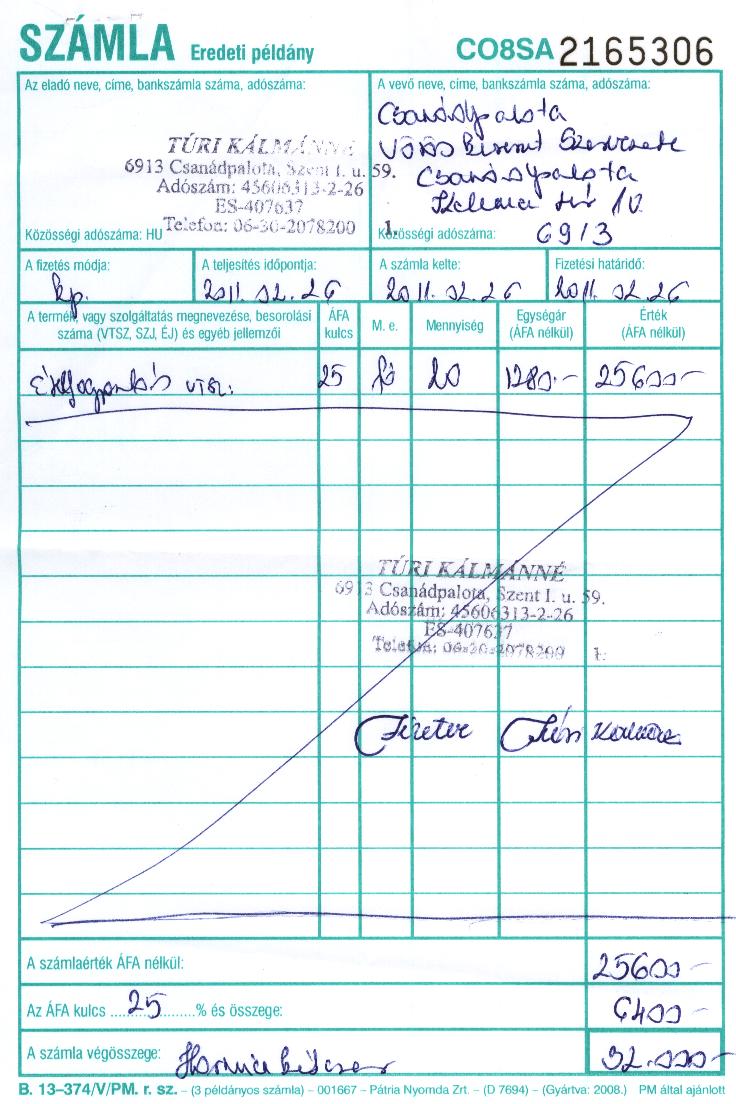 SZÁMLA Eredeti példány CO8SA 2165306
Az eladó neve, címe, bankszámla száma, adószáma:
TÚRI KÁLMÁNNÉ
6913 Csanádpalota, Szent I. u. 59.
Adószám: 45606313-2-26
ES-407637
Telefon: 06-30-2078200 1.
Közösségi adószáma: HU
A vevő neve, címe, bankszámla száma, adószáma:
Csanádpalota
Vörös Kereszt Szervezete
Csanádpalota
Kelemen tér 10
Közösségi adószáma: 6913
A fizetés módja: A teljesítés időpontja: A számla kelte: Fizetési határidő:
kp. 2011. 02. 26 2011. 02. 26 2011. 02. 26
A termék, vagy szolgáltatás megnevezése, besorolási
száma (VTSZ, SZJ, ÉJ) és egyéb jellemzői
ÁFA
kulcs
M. e.
Mennyiség
Egységár
(ÁFA nélkül)
Érték
(ÁFA nélkül)
25 fő 20 1280.- 25600-
TÚRI KÁLMÁNNÉ
6913 Csanádpalota, Szent I. u. 59.
Adószám: 45606313-2-26
ES-407637
Telefon: 06-30-2078200 1.
Fizetve Túri Kálmánné
A számlaérték ÁFA nélkül: 25600-
Az ÁFA kulcs 25 % és összege: 6400-
A számla végösszege: 32.000-
B. 13–374/V/PM. r. sz. – (3 példányos számla) – 001667 – Pátria Nyomda Zrt. – (D 7694) – (Gyártva: 2008.) PM által ajánlott